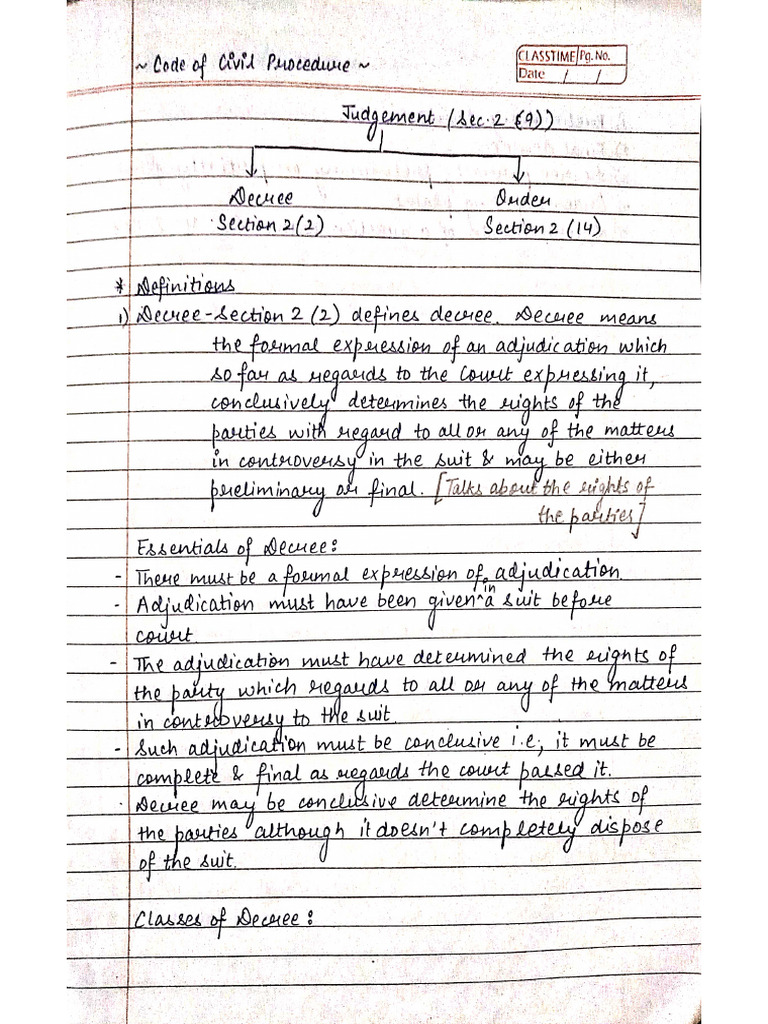 ~ Code of Civil Procedure ~
CLASSTIME Pg. No.
Date / /
Judgement (Sec. 2 (9))
Decree Order
Section 2 (2) Section 2 (14)
* Definitions
1) Decree - Section 2 (2) defines decree. Decree means
the formal expression of an adjudication which
so far as regards to the Court expressing it,
conclusively determines the rights of the
parties with regard to all or any of the matters
in controversy in the suit & may be either
preliminary or final. [Talks about the rights of
the parties]
Essentials of Decree:
- There must be a formal expression of adjudication.
- Adjudication must have been given ^in a suit before
court.
- The adjudication must have determined the rights of
the party which regards to all or any of the matters
in controversy to the suit.
- Such adjudication must be conclusive i.e; it must be
complete & final as regards the court passed it.
. Decree may be conclusive determine the rights of
the parties although it doesn't completely dispose
of the suit.
Classes of Decree: